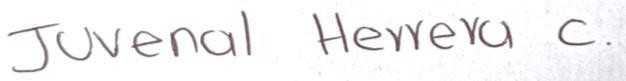 Juvenal Herrera C.